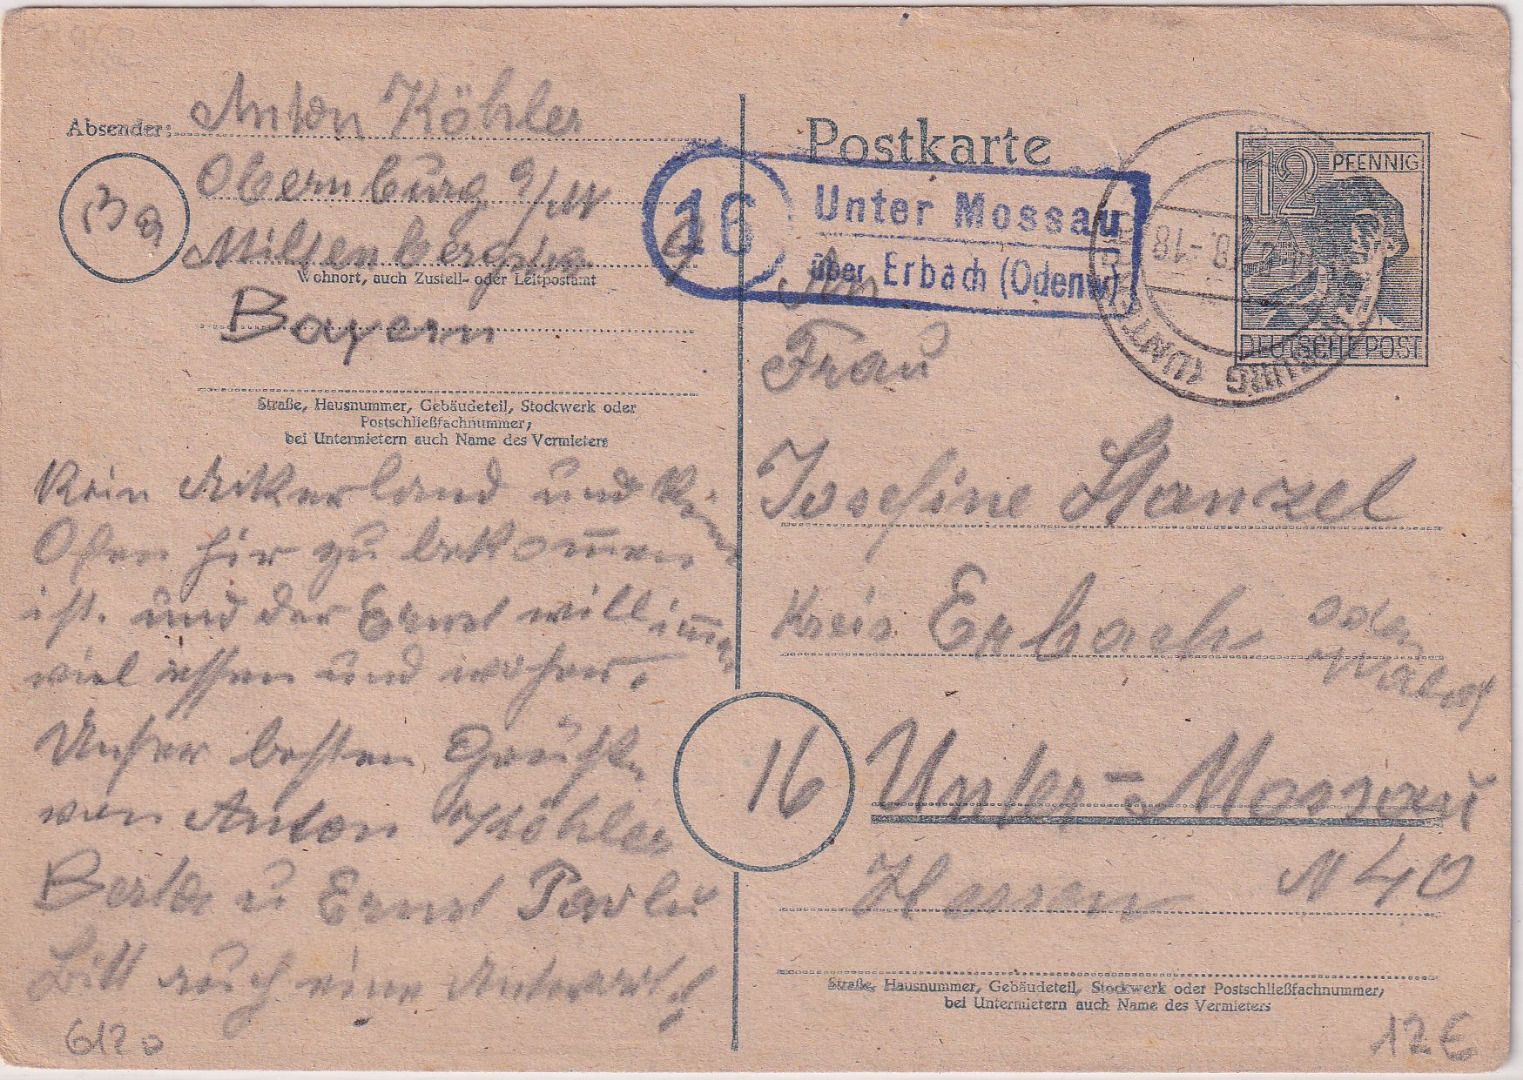 Absender: Anton Köhler
Obernburg a/M
Miltenbergstr. 9
Wohnort, auch Zustell- oder Leitpostamt
13a
Bayern
Straße, Hausnummer, Gebäudeteil, Stockwerk oder
Postschließfachnummer;
bei Untermietern auch Name des Vermieters
Kein Ackerland und Kein
Ofen hir zu bekommen
ist. und der Ernst will immer
viel essen und
Unser besten Grüße
von Anton Köhler
Berta u Ernst Pavlu
Bitt auch eine Antwort!
6120
Postkarte
16
Unter Mossau
über Erbach (Odenw)
12 PFENNIG
DEUTSCHE POST
An
Frau
Josefine Stanzel
Kreis Erbach Oden
Wald
16 Unter-Mossau
Hessen N 40
Straße, Hausnummer, Gebäudeteil, Stockwerk oder Postschließfachnummer;
bei Untermietern auch Name des Vermieters
12€